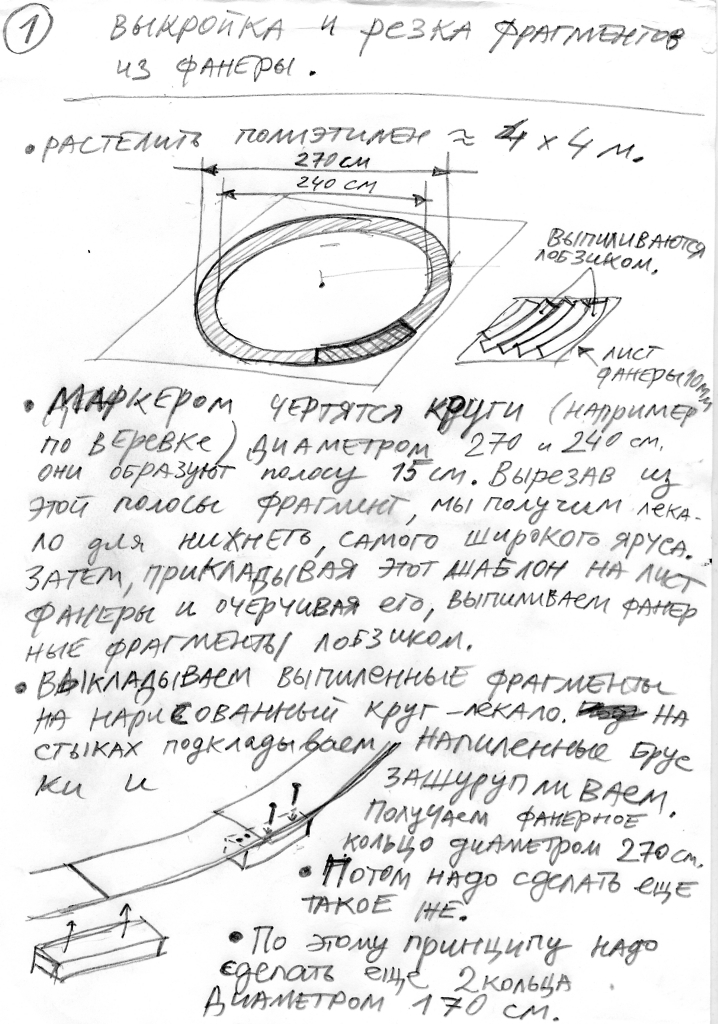 1
ВЫКРОЙКА И РЕЗКА ФРАГМЕНТОВ
ИЗ ФАНЕРЫ.
• РАСТЕЛИТЬ ПОЛИЭТИЛЕН ≈ 4 х 4 м.
270 см
240 см
ВЫПИЛИВАЮТСЯ
ЛОБЗИКОМ.
ЛИСТ
ФАНЕРЫ 10мм
• МАРКЕРОМ ЧЕРТЯТСЯ КРУГИ (НАПРИМЕР
ПО ВЕРЕВКЕ) ДИАМЕТРОМ 270 и 240 см.
ОНИ ОБРАЗУЮТ ПОЛОСУ 15 см. ВЫРЕЗАВ ИЗ
ЭТОЙ ПОЛОСЫ ФРАГМЕНТ, МЫ ПОЛУЧИМ ЛЕКА-
ЛО ДЛЯ НИХНЕГО, САМОГО ШИРОКОГО ЯРУСА.
ЗАТЕМ, ПРИКЛАДЫВАЯ ЭТОТ ШАБЛОН НА ЛИСТ
ФАНЕРЫ И ОЧЕРЧИВАЯ ЕГО, ВЫПИЛИВАЕМ ФАНЕР
НЫЕ ФРАГМЕНТЫ ЛОБЗИКОМ.
• ВЫКЛАДЫВАЕМ ВЫПИЛЕННЫЕ ФРАГМЕНТЫ
НА НАРИСОВАННЫЙ КРУГ-ЛЕКАЛО. НА
СТЫКАХ ПОДКЛАДЫВАЕМ НАПИЛЕННЫЕ БРУС
КИ И
ЗАШУРУПЛИВАЕМ.
ПОЛУЧАЕМ ФАНЕРНОЕ
КОЛЬЦО ДИАМЕТРОМ 270 см.
• ПОТОМ НАДО СДЕЛАТЬ ЕЩЕ
ТАКОЕ ЖЕ.
• ПО ЭТОМУ ПРИНЦИПУ НАДО
СДЕЛАТЬ ЕЩЕ 2 КОЛЬЦА
ДИАМЕТРОМ 170 СМ.